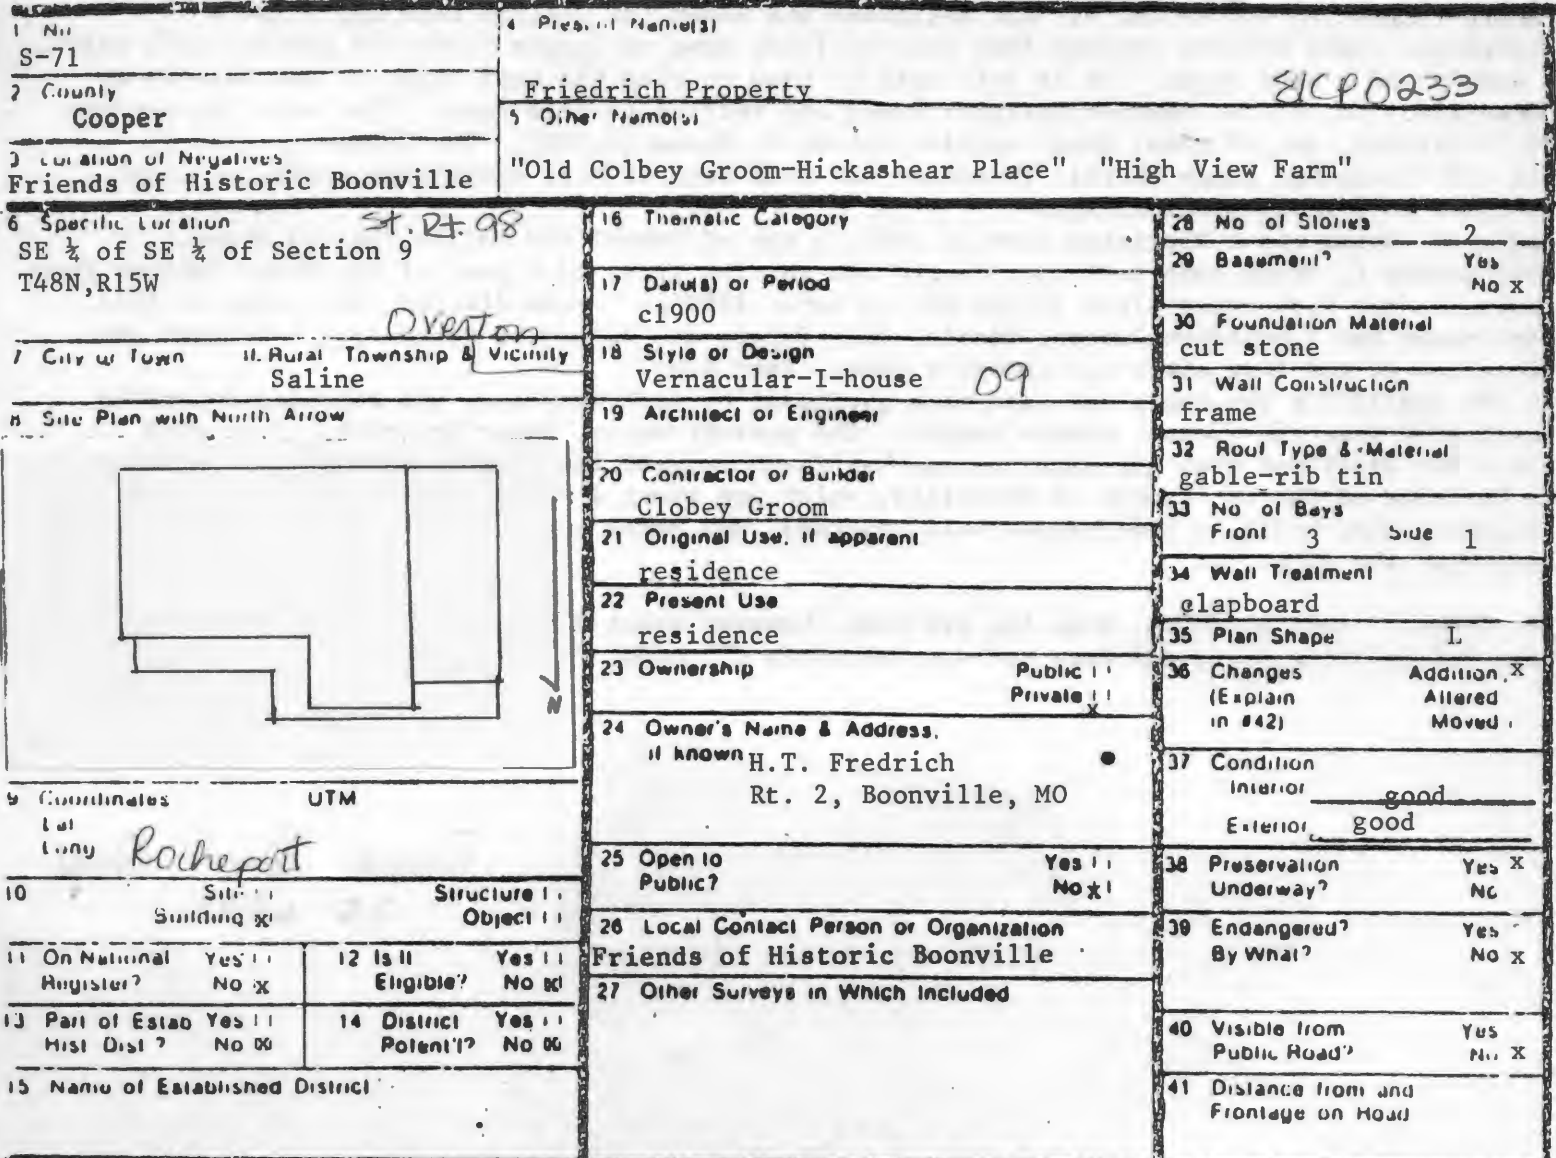 1 No
S-71
2 County
Cooper
3 Location of Negatives
Friends of Historic Boonville
4 Present Name(s)
Friedrich Property
81CP0233
5 Other Name(s)
"Old Colbey Groom-Hickashear Place" "High View Farm"
6 Specific Location
St. Rt. 98
SE ¼ of SE ¼ of Section 9
T48N,R15W
Overton
7 City or Town If Rural Township & Vicinity
Saline
8 Site Plan with North Arrow
N
9 Coordinates UTM
Lat
Long
Rocheport
10 Site
Structure
Building x
Object
11 On National Register? Yes
No x
12 Is It Eligible? Yes
No x
13 Part of Estab Hist Dist? Yes
No x
14 District Potent'l? Yes
No x
15 Name of Established District
16 Thematic Category
17 Date(s) or Period
c1900
18 Style or Design
Vernacular-I-house 09
19 Architect or Engineer
20 Contractor or Builder
Clobey Groom
21 Original Use, if apparent
residence
22 Present Use
residence
23 Ownership Public
Private
x
24 Owner's Name & Address,
if known H.T. Fredrich
Rt. 2, Boonville, MO
25 Open to Public? Yes
No x
26 Local Contact Person or Organization
Friends of Historic Boonville
27 Other Surveys in Which Included
28 No of Stories 2
29 Basement? Yes
No x
30 Foundation Material
cut stone
31 Wall Construction
frame
32 Roof Type & Material
gable-rib tin
33 No of Bays
Front 3 Side 1
34 Wall Treatment
clapboard
35 Plan Shape L
36 Changes Addition x
(Explain Altered
in #42) Moved
37 Condition
Interior good
Exterior good
38 Preservation Yes x
Underway? No
39 Endangered? Yes
By What? No x
40 Visible from Yes
Public Road? No x
41 Distance from and
Frontage on Road